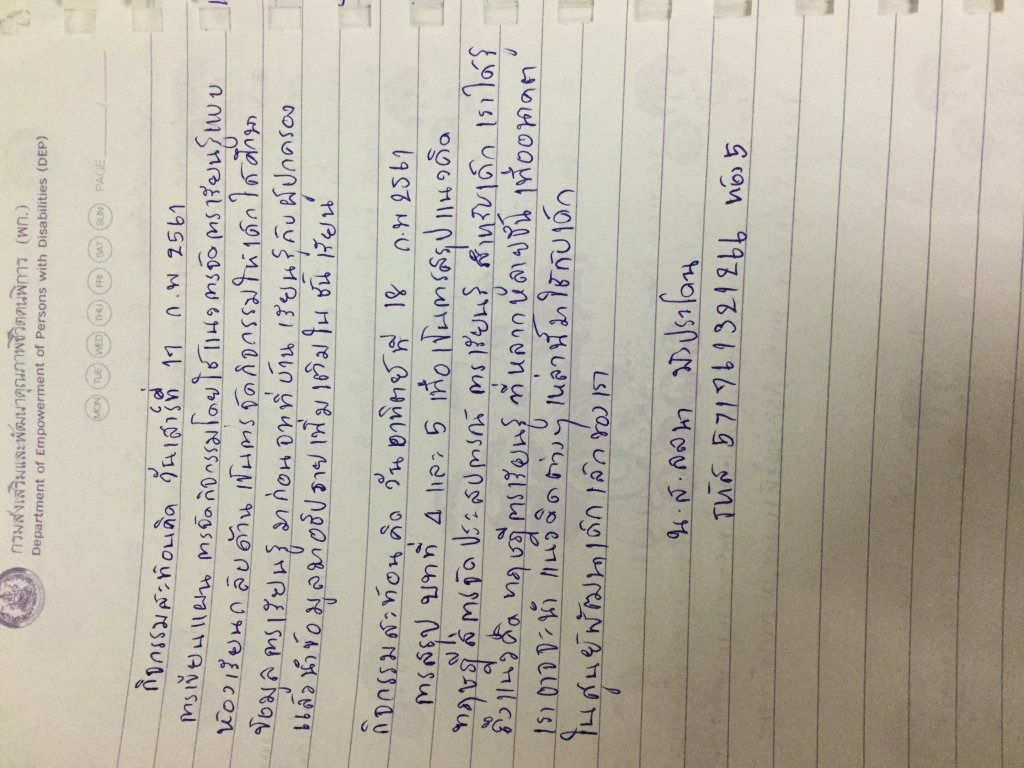 กรมส่งเสริมและพัฒนาคุณภาพชีวิตคนพิการ (พก.)
Department of Empowerment of Persons with Disabilities (DEP)
MON TUE WED THU FRI SAT SUN PAGE / 
กิจกรรมสะท้อนคิด วันเสาร์ที่ 17 ก.พ 2561
การเขียนแผน การจัดกิจกรรมโดยใช้แนวการจัดการเรียนรู้แบบ
ห้องเรียนกลับด้าน เป็นการจัดกิจกรรมให้เด็กได้ศึกษา
ข้อมูลการเรียนรู้ มาก่อนจากที่บ้าน เรียนรู้กับผู้ปกครอง
แล้วนำข้อมูลมาอธิบายเพิ่มเติมในชั้นเรียน
กิจกรรมสะท้อนคิด วันอาทิตย์ที่ 18 ก.พ 2561
การสรุป บทที่ 4 และ 5 เพื่อเป็นการสรุปแนวคิด
ทฤษฎี สู่การจัดประสบการณ์ การเรียนรู้ สำหรับเด็ก เราได้รู้
ถึงแนวคิด ทฤษฎีการเรียนรู้ ที่หลากหลายยิ่งขึ้น เพื่ออนาคต
เราอาจจะนำ แนวคิดต่างๆ เหล่านี้มาใช้กับเด็ก
ในศูนย์พัฒนาเด็กเล็กของเรา
น.ส. ลลนา บัวประโคน
รหัส 57176132126 ห้อง 5